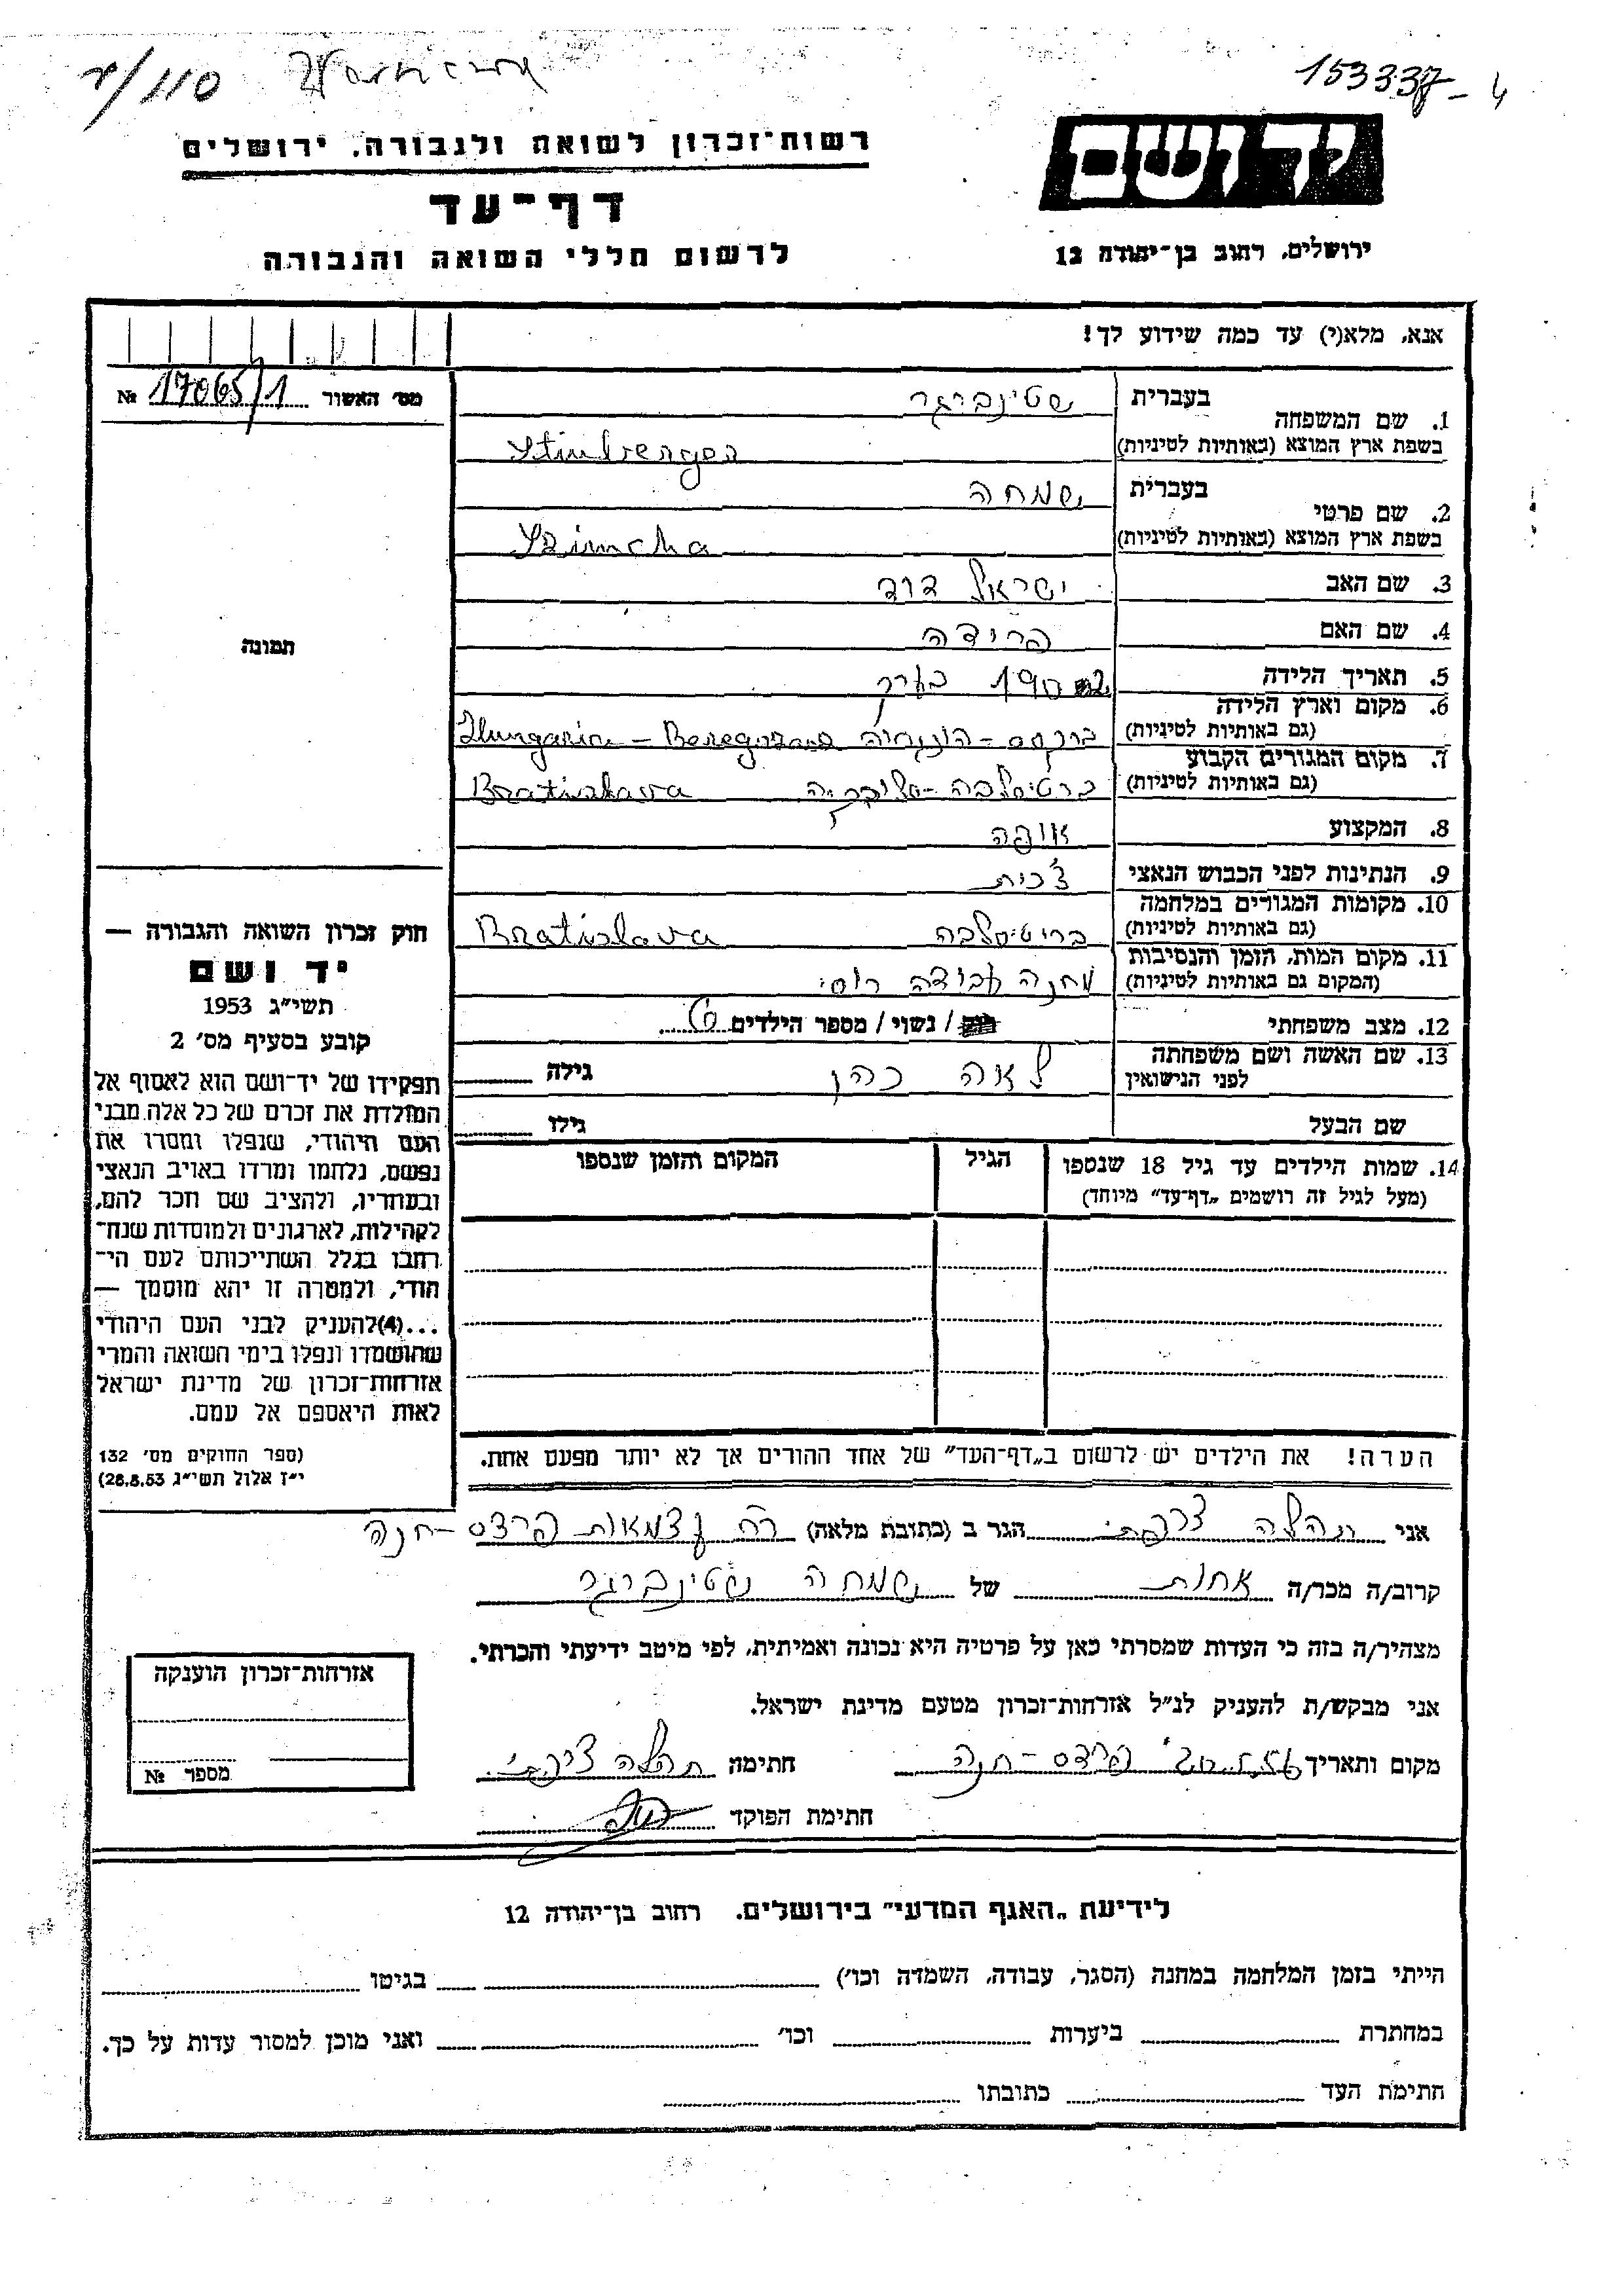 153337-4
110/
יד ושם
ירושלים, רחוב בן-יהודה 12
רשות-זכרון לשואה ולגבורה, ירושלים
דף-עד
לרשום חללי השואה והגבורה
אנא, מלא(י) עד כמה שידוע לך!
מס' האשור 17065/1 №
תמונה
1. שם המשפחה
בעברית שטינברגר
בשפת ארץ המוצא (באותיות לטיניות) Stinberger
2. שם פרטי
בעברית שמחה
בשפת ארץ המוצא (באותיות לטיניות) Szimcha
3. שם האב ישראל דוד
4. שם האם פרידה
5. תאריך הלידה בערך
6. מקום וארץ הלידה
(גם באותיות לטיניות) ברגסס - הונגריה Hungaria -
7. מקום המגורים הקבוע
(גם באותיות לטיניות) ברטיסלבה - סלובקיה Bratislava
8. המקצוע אופה
9. הנתינות לפני הכבוש הנאצי צ'כית
10. מקומות המגורים במלחמה
(גם באותיות לטיניות) ברטיסלבה Bratislava
11. מקום המות, הזמן והנסיבות
(המקום גם באותיות לטיניות) מחנה עבודה רוסי
12. מצב משפחתי / נשוי / מספר הילדים 6
13. שם האשה ושם משפחתה
לפני הנישואין לאה כהן גילה
שם הבעל גילו
14. שמות הילדים עד גיל 18 שנספו הגיל המקום והזמן שנספו
(מעל לגיל זה רושמים „דף-עד" מיוחד)
הערה! את הילדים יש לרשום ב„דף-העד" של אחד ההורים אך לא יותר מפעם אחת.
חוק זכרון השואה והגבורה —
יד ושם
תשי"ג 1953
קובע בסעיף מס' 2
תפקידו של יד-ושם הוא לאסוף אל
המולדת את זכרם של כל אלה מבני
העם היהודי, שנפלו ומסרו את
נפשם, נלחמו ומרדו באויב הנאצי
ובעוזריו, ולהציב שם וזכר להם,
לקהילות, לארגונים ולמוסדות שנח-
רבו בגלל השתייכותם לעם הי-
הודי, ולמטרה זו יהא מוסמך —
...(4)להעניק לבני העם היהודי
שהושמדו ונפלו בימי השואה והמרי
אזרחות-זכרון של מדינת ישראל
לאות היאספם אל עמם.
(ספר החוקים מס' 132
י"ז אלול תשי"ג 28.8.53)
אני תהלה צרפתי הגר ב (כתובת מלאה) רח עצמאות פרדס-חנה
קרוב/ה מכר/ה אחות של שמחה שטינברגר
מצהיר/ה בזה כי העדות שמסרתי כאן על פרטיה היא נכונה ואמיתית, לפי מיטב ידיעתי והכרתי.
אני מבקש/ת להעניק לנ"ל אזרחות-זכרון מטעם מדינת ישראל.
מקום ותאריך 20.5.56 פרדס-חנה חתימה תהלה צרפתי
חתימת הפוקד
אזרחות-זכרון הוענקה
מספר №
לידיעת „האגף המדעי" בירושלים, רחוב בן-יהודה 12
הייתי בזמן המלחמה במחנה (הסגר, עבודה, השמדה וכו') בגיטו
במחתרת ביערות וכו' ואני מוכן למסור עדות על כך.
חתימת העד כתובתו